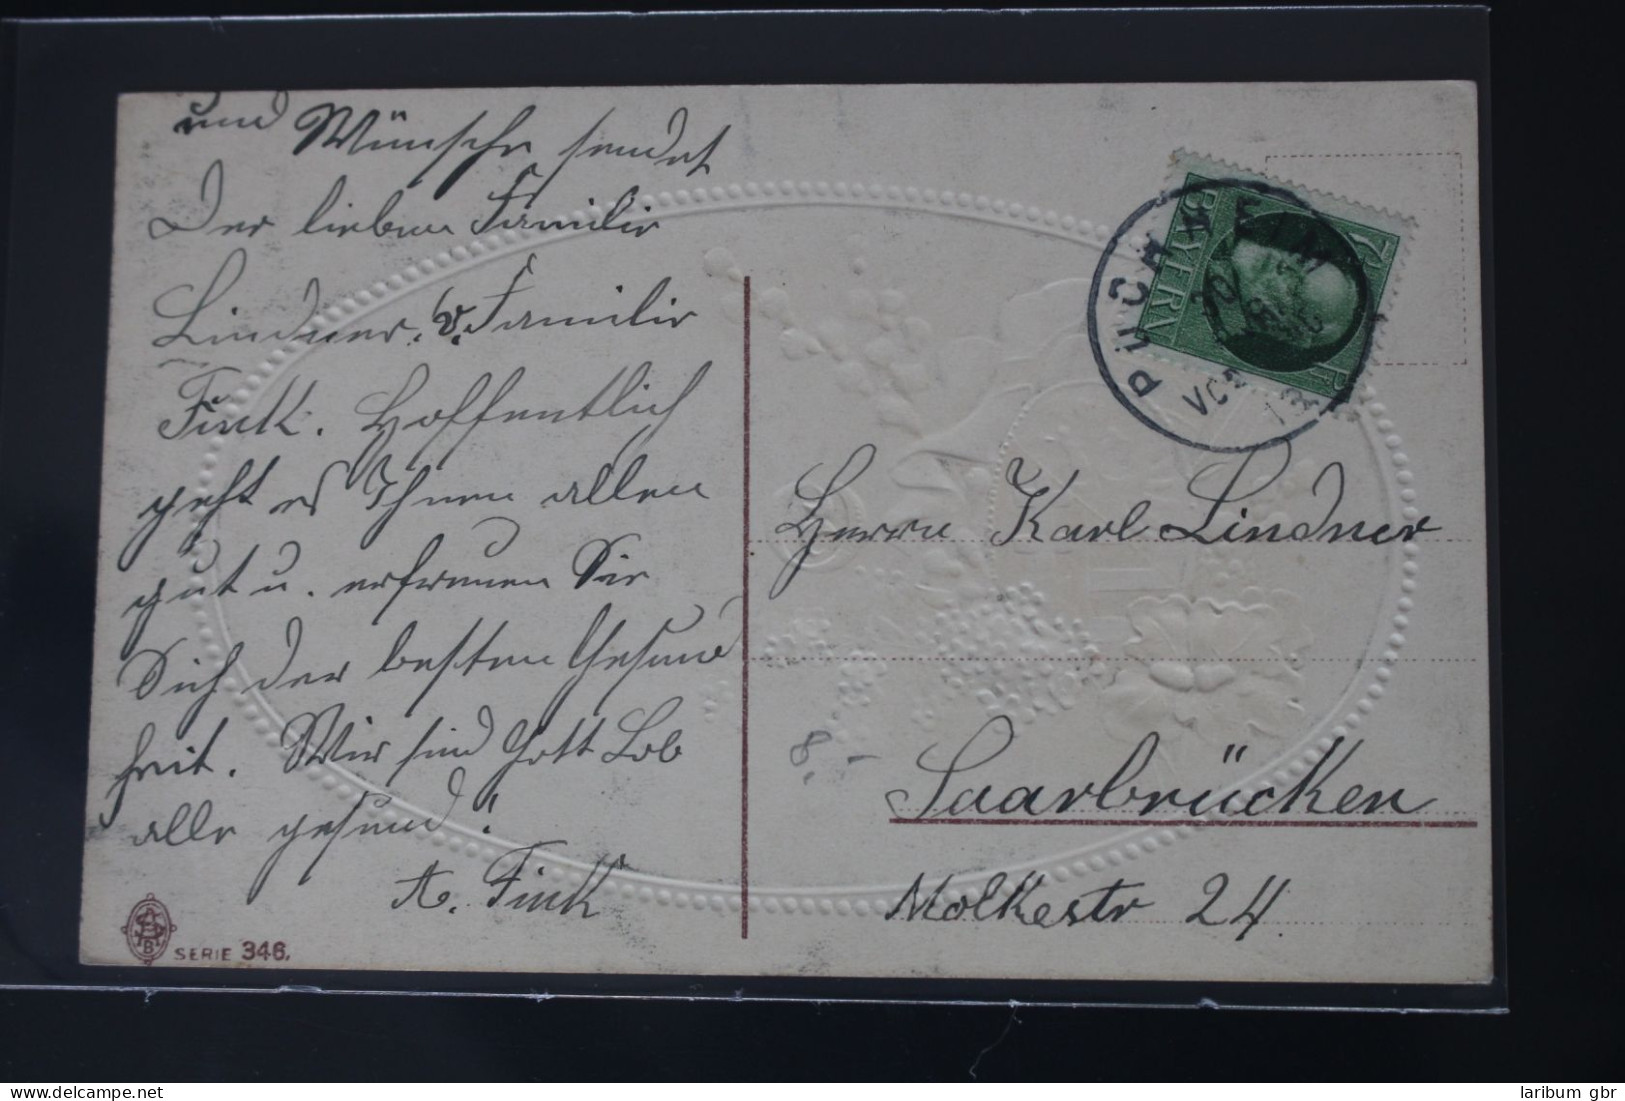 und Wünsche sendet
Der lieben Familie
Lindner. v. Familie
Fink. Hoffentlich
geht es Ihnen allen
gut u. erfreuen Sie
Sich der besten Gesund
heit. Wir sind Gott Lob
alle gesund!
A. Fink
SERIE 346.
BAYERN
PUCHHEIM
Herrn Karl Lindner
8,-
Saarbrücken
Molkestr 24
laribum gbr